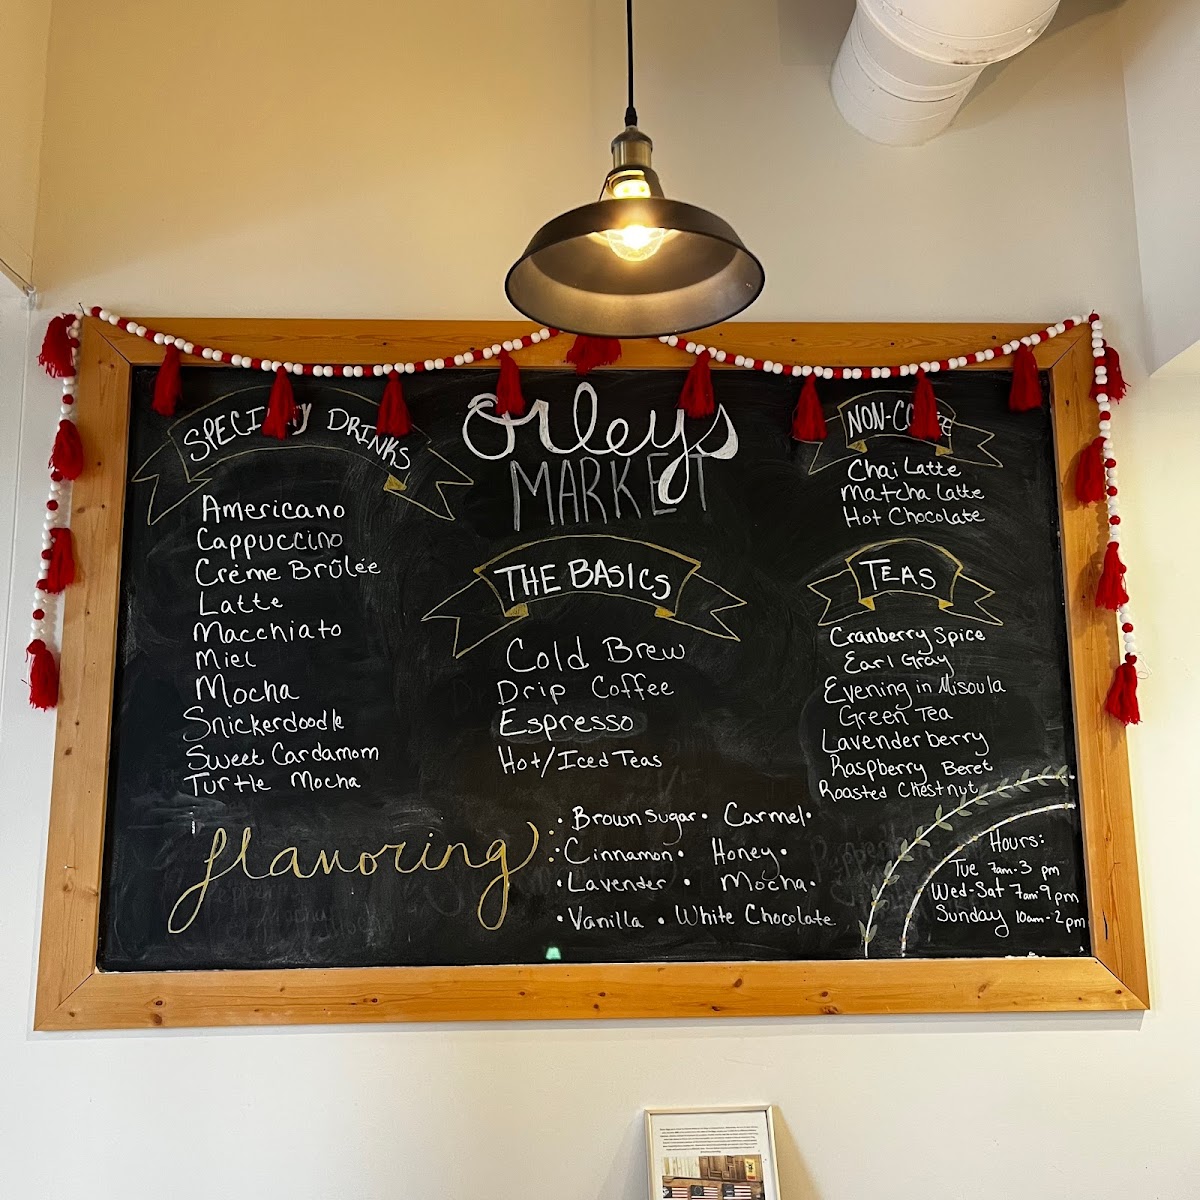 Orleys
MARKET
SPECIALTY DRINKS
Americano
Cappuccino
Créme Brûlée
Latte
Macchiato
Miel
Mocha
Snickerdoodle
Sweet Cardamom
Turtle Mocha
THE BASICS
Cold Brew
Drip Coffee
Espresso
Hot/Iced Teas
NON-COFFEE
Chai Latte
Matcha Latte
Hot Chocolate
TEAS
Cranberry Spice
Earl Gray
Evening in Misoula
Green Tea
Lavenderberry
Raspberry Beret
Roasted Chestnut
flavoring
• Brown Sugar • Carmel •
• Cinnamon • Honey •
• Lavender • Mocha •
• Vanilla • White Chocolate
Hours:
Tue 7am-3 pm
Wed-Sat 7am-9pm
Sunday 10am-2pm